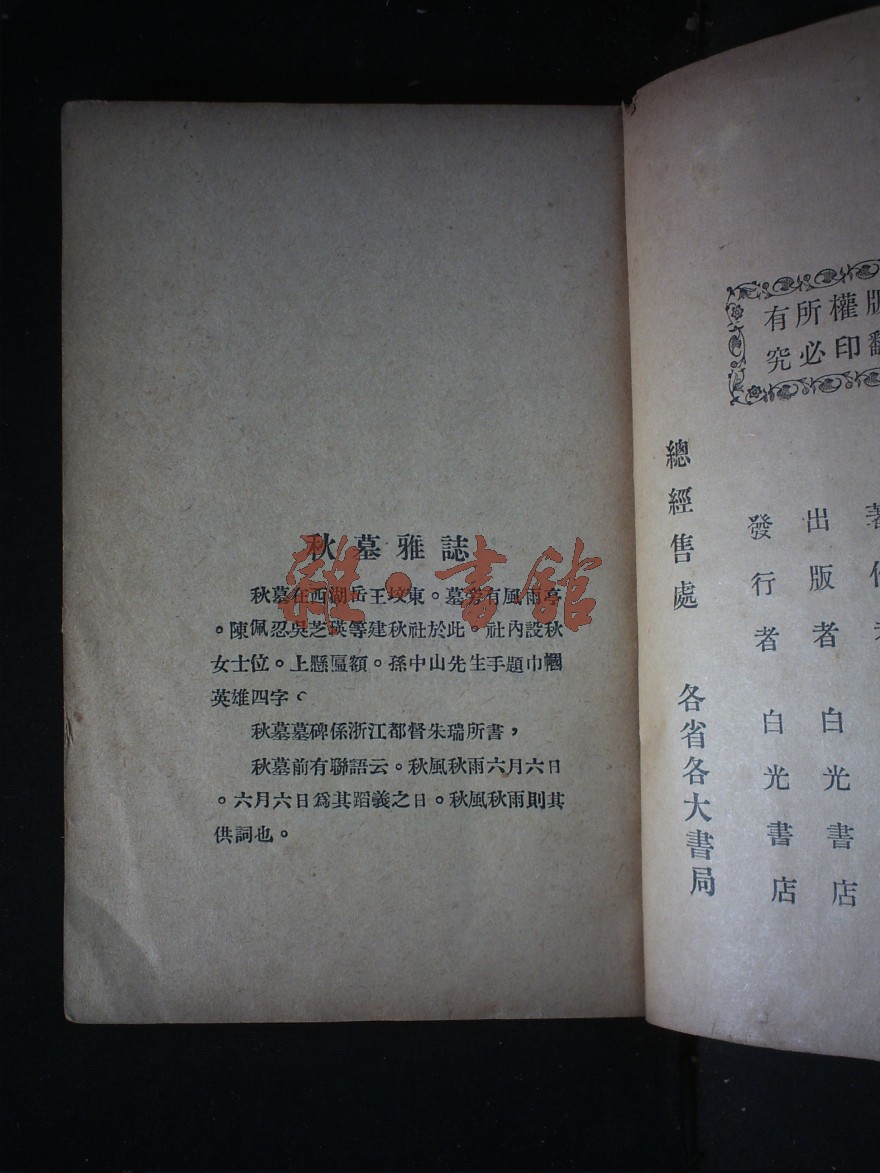 秋墓雅誌
秋墓在西湖岳王坟東。墓旁有風雨亭
。陳佩忍吳芝瑛等建秋社於此。社內設秋
女士位。上懸匾額。孫中山先生手題巾幗
英雄四字。
秋墓墓碑係浙江都督朱瑞所書，
秋墓前有聯語云。秋風秋雨六月六日
。六月六日爲其蹈義之日。秋風秋雨則其
供詞也。
雜·書館
版權所有
翻印必究
著作者
出版者 白光書店
發行者 白光書店
總經售處 各省各大書局